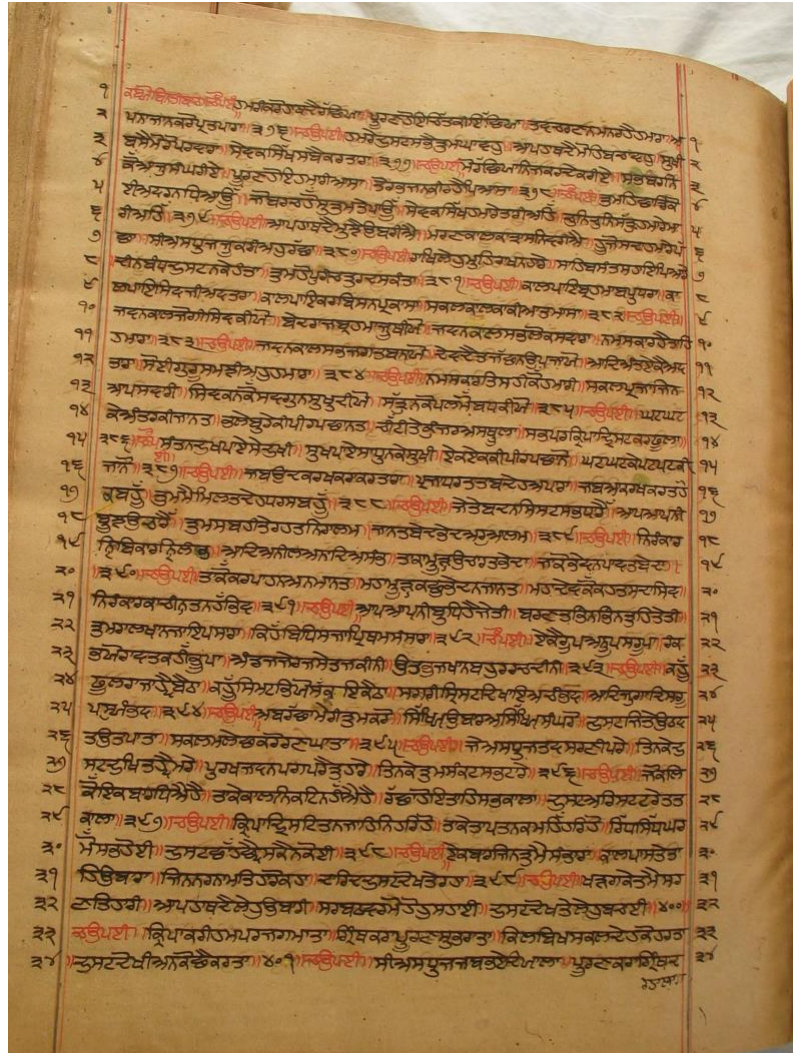 ੧ ਹਮਰੀ ਕਰੋ ਹਾਥ ਦੈ ਰੱਛਿਆ ॥ ਪੂਰਣ ਹੋਇ ਚਿੱਤ ਕੀ ਇੱਛਿਆ ॥ ਤਵ ਚਰਣਨ ਮਨ ਰਹੈ ਹਮਾਰਾ ॥ ਅ ੧
੨ ਪਨਾ ਜਾਨ ਕਰੋ ਪ੍ਰਤਪਾਰਾ ॥੩੭੬॥ ਚਉਪਈ ॥ ਹਮਰੇ ਦੁਸਟ ਸਭੈ ਤੁਮ ਘਾਵਹੁ ॥ ਆਪ ਹਾਥ ਦੈ ਮੋਹਿ ਬਚਾਵਹੁ ॥ ਸੁਖੀ ੨
੩ ਬਸੈ ਮੋਰੋ ਪਰਵਾਰਾ ॥ ਸੇਵਕ ਸਿੱਖ੍ਯ ਸਬੈ ਕਰਤਾਰਾ ॥੩੭੭॥ ਚਉਪਈ ॥ ਮੋ ਰੱਛਿਆ ਨਿਜ ਕਰ ਦੈ ਕਰੀਐ ॥ ਸਭ ਬੈਰਨਿ ੩
੪ ਕੌ ਆਜੁ ਸੰਘਰੀਐ ॥ ਪੂਰਣ ਹੋਇ ਹਮਾਰੀ ਆਸਾ ॥ ਤੋਰਿ ਭਜਨ ਕੀ ਰਹੈ ਪਿਆਸਾ ॥੩੭੮॥ ਚੌਪਈ ॥ ਤੁਮਹਿ ਛਾਡਿ ਕੋ ੪
੫ ਈ ਅਵਰ ਨ ਧਿਆਊਂ ॥ ਜੋ ਬਰ ਚਹੋਂ ਸੁ ਤੁਮ ਤੇ ਪਾਊਂ ॥ ਸੇਵਕ ਸਿੱਖ੍ਯ ਹਮਾਰੇ ਤਾਰੀਅਹਿ ॥ ਚੁਨਿ ਚੁਨਿ ਸੱਤ੍ਰੁ ਹਮਾਰੇ ਮਾ ੫
੬ ਰੀਅਹਿ ॥੩੭੯॥ ਚਉਪਈ ॥ ਆਪ ਹਾਥ ਦੈ ਮੁਝੈ ਉਬਰੀਐ ॥ ਮਰਣ ਕਾਲ ਕਾ ਤ੍ਰਾਸ ਨਿਵਰੀਐ ॥ ਹੂਜੋ ਸਦਾ ਹਮਾਰੇ ਪੱ ੬
੭ ਛਾ ॥ ਸ੍ਰੀ ਅਸਧੁਜ ਜੂ ਕਰੀਅਹੁ ਰੱਛਾ ॥੩੮੦॥ ਚਉਪਈ ॥ ਰਾਖਿ ਲੇਹੁ ਮੁਹਿ ਰਾਖਨਹਾਰੇ ॥ ਸਾਹਿਬ ਸੰਤ ਸਹਾਇ ਪਿਆਰੇ ੭
੮ ਦੀਨ ਬੰਧੁ ਦੁਸਟਨ ਕੇ ਹੰਤਾ ॥ ਤੁਮ ਹੋ ਪੁਰੀ ਚਤੁਰਦਸ ਕੰਤਾ ॥੩੮੧॥ ਚਉਪਈ ॥ ਕਾਲ ਪਾਇ ਬ੍ਰਹਮਾ ਬਪੁ ਧਰਾ ॥ ਕਾ ੮
੯ ਲ ਪਾਇ ਸਿਵ ਜੀ ਅਵਤਰਾ ॥ ਕਾਲ ਪਾਇ ਕਰ ਬਿਸਨ ਪ੍ਰਕਾਸਾ ॥ ਸਕਲ ਕਾਲ ਕਾ ਕੀਆ ਤਮਾਸਾ ॥੩੮੨॥ ਚਉਪਈ ॥ ੯
੧੦ ਜਵਨ ਕਾਲ ਜੋਗੀ ਸਿਵ ਕੀਓ ॥ ਬੇਦ ਰਾਜ ਬ੍ਰਹਮਾ ਜੂ ਥੀਓ ॥ ਜਵਨ ਕਾਲ ਸਭ ਲੋਕ ਸਵਾਰਾ ॥ ਨਮਸਕਾਰ ਹੈ ਤਾਹਿ ੧੦
੧੧ ਹਮਾਰਾ ॥੩੮੩॥ ਚਉਪਈ ॥ ਜਵਨ ਕਾਲ ਸਭ ਜਗਤ ਬਨਾਯੋ ॥ ਦੇਵ ਦੈਤ ਜੱਛਨ ਉਪਜਾਯੋ ॥ ਆਦਿ ਅੰਤਿ ਏਕੈ ਅਵ ੧੧
੧੨ ਤਾਰਾ ॥ ਸੋਈ ਗੁਰੂ ਸਮਝੀਅਹੁ ਹਮਾਰਾ ॥੩੮੪॥ ਚਉਪਈ ॥ ਨਮਸਕਾਰ ਤਿਸ ਹੀ ਕੋ ਹਮਾਰੀ ॥ ਸਕਲ ਪ੍ਰਜਾ ਜਿਨ ੧੨
੧੩ ਆਪ ਸਵਾਰੀ ॥ ਸਿਵਕਨ ਕੌ ਸਵਗੁਨ ਸੁਖ ਦੀਓ ॥ ਸੱਤ੍ਰੁਨ ਕੋ ਪਲ ਮੋ ਬਧ ਕੀਓ ॥੩੮੫॥ ਚਉਪਈ ॥ ਘਟ ਘਟ ੧੩
੧੪ ਕੇ ਅੰਤਰ ਕੀ ਜਾਨਤ ॥ ਭਲੇ ਬੁਰੇ ਕੀ ਪੀਰ ਪਛਾਨਤ ॥ ਚੀਟੀ ਤੇ ਕੁੰਚਰ ਅਸਥੂਲਾ ॥ ਸਭ ਪਰ ਕ੍ਰਿਪਾ ਦ੍ਰਿਸਟਿ ਕਰ ਫੂਲਾ ॥ ੧੪
੧੫ ੩੮੬॥ ਚੌਪਈ ॥ ਸੰਤਨ ਦੁਖ ਪਾਏ ਤੇ ਦੁਖੀ ॥ ਸੁਖ ਪਾਏ ਸਾਧੁਨ ਕੇ ਸੁਖੀ ॥ ਏਕ ਏਕ ਕੀ ਪੀਰ ਪਛਾਨੈ ॥ ਘਟ ਘਟ ਕੇ ਪਟ ਪਟ ਕੀ ੧੫
੧੬ ਜਾਨੈ ॥੩੮੭॥ ਚਉਪਈ ॥ ਜਬ ਉਦਕਰਖ ਕਰਾ ਕਰਤਾਰਾ ॥ ਪ੍ਰਜਾ ਧਰਤ ਤਬ ਦੇਹ ਅਪਾਰਾ ॥ ਜਬ ਆਕਰਖ ਕਰਤ ਹੋ ੧੬
੧੭ ਕਬਹੂੰ ॥ ਤੁਮ ਮੈ ਮਿਲਤ ਦੇਹ ਧਰ ਸਬਹੂੰ ॥੩੮੮॥ ਚਉਪਈ ॥ ਜੇਤੇ ਬਦਨ ਸ੍ਰਿਸਟਿ ਸਭ ਧਾਰੈ ॥ ਆਪ ਆਪਨੀ ੧੭
੧੮ ਬੂਝ ਉਚਾਰੈ ॥ ਤੁਮ ਸਭ ਹੀ ਤੇ ਰਹਤ ਨਿਰਾਲਮ ॥ ਜਾਨਤ ਬੇਦ ਭੇਦ ਅਰ ਆਲਮ ॥੩੮੯॥ ਚਉਪਈ ॥ ਨਿਰੰਕਾਰ ੧੮
੧੯ ਨ੍ਰਿਬਿਕਾਰ ਨ੍ਰਿਲੰਭ ॥ ਆਦਿ ਅਨੀਲ ਅਨਾਦਿ ਅਸੰਭ ॥ ਤਾ ਕਾ ਮੂੜ੍ਹ ਉਚਾਰਤ ਭੇਦਾ ॥ ਜਾ ਕੋ ਭੇਵ ਨ ਪਾਵਤ ਬੇਦਾ ॥ ੧੯
੨੦ ॥੩੯੦॥ ਚਉਪਈ ॥ ਤਾ ਕੌ ਕਰ ਪਾਹਨ ਅਨਮਾਨਤ ॥ ਮਹਾ ਮੂੜ੍ਹ ਕਛੁ ਭੇਦ ਨ ਜਾਨਤ ॥ ਮਹਾਦੇਵ ਕੌ ਕਹਤ ਸਦਾ ਸਿਵ ੨੦
੨੧ ਨਿਰੰਕਾਰ ਕਾ ਚੀਨਤ ਨਹਿ ਭਿਵ ॥੩੯੧॥ ਚਉਪਈ ॥ ਆਪ ਆਪਨੀ ਬੁਧਿ ਹੈ ਜੇਤੀ ॥ ਬਰਣਤ ਭਿੰਨ ਭਿੰਨ ਤੁਹਿ ਤੇਤੀ ॥ ੨੧
੨੨ ਤੁਮਰਾ ਲਖਾ ਨ ਜਾਇ ਪਸਾਰਾ ॥ ਕਿਹ ਬਿਧਿ ਸਜਾ ਪ੍ਰਿਥਮ ਸੰਸਾਰਾ ॥੩੯੨॥ ਚੌਪਈ ॥ ਏਕੈ ਰੂਪ ਅਨੂਪ ਸਰੂਪਾ ॥ ਰੰਕ ੨੨
੨੩ ਭਯੋ ਰਾਵ ਤ ਕਹੀਂ ਭੂਪਾ ॥ ਅੰਡਜ ਜੇਰਜ ਸੇਤਜ ਕੀਨੀ ॥ ਉਤਭੁਜ ਖਾਨ ਬਹੁਰ ਰਚ ਦੀਨੀ ॥੩੯੩॥ ਚਉਪਈ ॥ ਕਹੂੰ ੨੩
੨੪ ਫੂਲ ਰਾਜਾ ਹ੍ਵੈ ਬੈਠਾ ॥ ਕਹੂੰ ਸਿਮਟਿ ਭਿਯੋ ਸੰਕਰ ਇਕੈਠਾ ॥ ਸਗਰੀ ਸ੍ਰਿਸਟਿ ਦਿਖਾਇ ਅਚੰਭਵ ॥ ਆਦਿ ਜੁਗਾਦਿ ਸਰੂ ੨੪
੨੫ ਪ ਸੁਯੰਭਵ ॥੩੯੪॥ ਚਉਪਈ ॥ ਅਬ ਰੱਛਾ ਮੇਰੀ ਤੁਮ ਕਰੋ ॥ ਸਿੱਖ੍ਯ ਉਬਾਰਿ ਅਸਿੱਖ੍ਯ ਸੰਘਰੋ ॥ ਦੁਸਟ ਜਿਤੇ ਉਠਵ ੨੫
੨੬ ਤ ਉਤਪਾਤਾ ॥ ਸਕਲ ਮਲੇਛ ਕਰੋ ਰਣ ਘਾਤਾ ॥੩੯੫॥ ਚਉਪਈ ॥ ਜੇ ਅਸਧੁਜ ਤਵ ਸਰਣੀ ਪਰੇ ॥ ਤਿਨ ਕੇ ਦੁ ੨੬
੨੭ ਸਟ ਦੁਖਿਤ ਹ੍ਵੈ ਮਰੇ ॥ ਪੁਰਖ ਜਵਨ ਪਗ ਪਰੇ ਤੁਹਾਰੇ ॥ ਤਿਨ ਕੇ ਤੁਮ ਸੰਕਟ ਸਭ ਟਾਰੇ ॥੩੯੬॥ ਚਉਪਈ ॥ ਜੋ ਕਲਿ ੨੭
੨੮ ਕੌ ਇਕ ਬਾਰ ਧਿਐਹੈ ॥ ਤਾ ਕੇ ਕਾਲ ਨਿਕਟਿ ਨਹਿ ਐਹੈ ॥ ਰੱਛਾ ਹੋਇ ਤਾਹਿ ਸਭ ਕਾਲਾ ॥ ਦੁਸਟ ਅਰਿਸਟ ਟਰੇ ਤਤ ੨੮
੨੯ ਕਾਲਾ ॥੩੯੭॥ ਚਉਪਈ ॥ ਕ੍ਰਿਪਾ ਦ੍ਰਿਸਟਿ ਤਨ ਜਾਹਿ ਨਿਹਰਿਹੋ ॥ ਤਾ ਕੇ ਤਾਪ ਤਨਕ ਮਹਿ ਹਰਿਹੋ ॥ ਰਿੱਧਿ ਸਿੱਧਿ ਘਰ ੨੯
੩੦ ਮੋਂ ਸਭ ਹੋਈ ॥ ਦੁਸਟ ਛਾਹ ਛ੍ਵੈ ਸਕੈ ਨ ਕੋਈ ॥੩੯੮॥ ਚਉਪਈ ॥ ਏਕ ਬਾਰ ਜਿਨ ਤੁਮੈ ਸੰਭਾਰਾ ॥ ਕਾਲ ਫਾਸ ਤੇ ਤਾ ੩੦
੩੧ ਹਿ ਉਬਾਰਾ ॥ ਜਿਨ ਨਰ ਨਾਮ ਤਿਹਾਰੋ ਕਹਾ ॥ ਦਾਰਿਦ ਦੁਸਟ ਦੋਖ ਤੇ ਰਹਾ ॥੩੯੯॥ ਚਉਪਈ ॥ ਖੜਗ ਕੇਤ ਮੈ ਸਰ ੩੧
੩੨ ਣ ਤਿਹਾਰੀ ॥ ਆਪ ਹਾਥ ਦੈ ਲੇਹੁ ਉਬਾਰੀ ॥ ਸਰਬ ਠੌਰ ਮੋ ਹੋਹੁ ਸਹਾਈ ॥ ਦੁਸਟ ਦੋਖ ਤੇ ਲੇਹੁ ਬਚਾਈ ॥੪੦੦॥ ੩੨
੩੩ ਚਉਪਈ ॥ ਕ੍ਰਿਪਾ ਕਰੀ ਹਮ ਪਰ ਜਗਮਾਤਾ ॥ ਗ੍ਰੰਥ ਕਰਾ ਪੂਰਣ ਸੁਭਰਾਤਾ ॥ ਕਿਲਬਿਖ ਸਕਲ ਦੇਹ ਕੋ ਹਰਤਾ ੩੩
੩੪ ॥ ਦੁਸਟ ਦੋਖੀਅਨ ਕੋ ਛੈ ਕਰਤਾ ॥੪੦੧॥ ਚਉਪਈ ॥ ਸ੍ਰੀ ਅਸਧੁਜ ਜਬ ਭਏ ਦਿਆਲਾ ॥ ਪੂਰਣ ਕਰਾ ਗ੍ਰੰਥ ਤ ੩੪